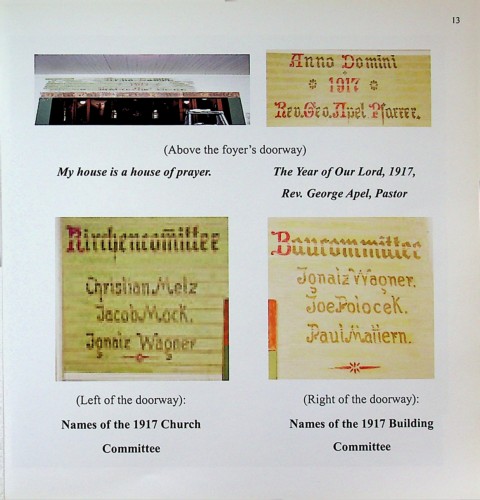 13
Anno Domini
1917
Rev. Geo. Apel Pfarrer.
(Above the foyer's doorway)
My house is a house of prayer.
The Year of Our Lord, 1917,
Rev. George Apel, Pastor
Kirchencomittee
Christian. Metz
Jacob. Mock.
Ignaiz Wagner
Baucommittee
Ignaiz Wagner.
Joe Polocek.
Paul Mattern.
(Left of the doorway):
Names of the 1917 Church
Committee
(Right of the doorway):
Names of the 1917 Building
Committee